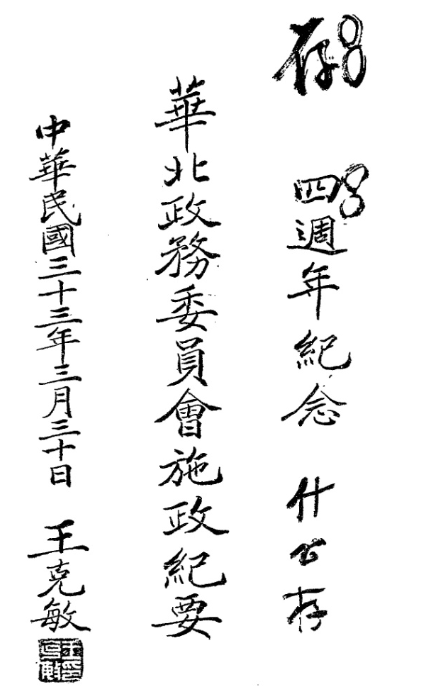 存
四週年紀念 什公存
華北政務委員會施政紀要
中華民國三十三年三月三十日 王克敏